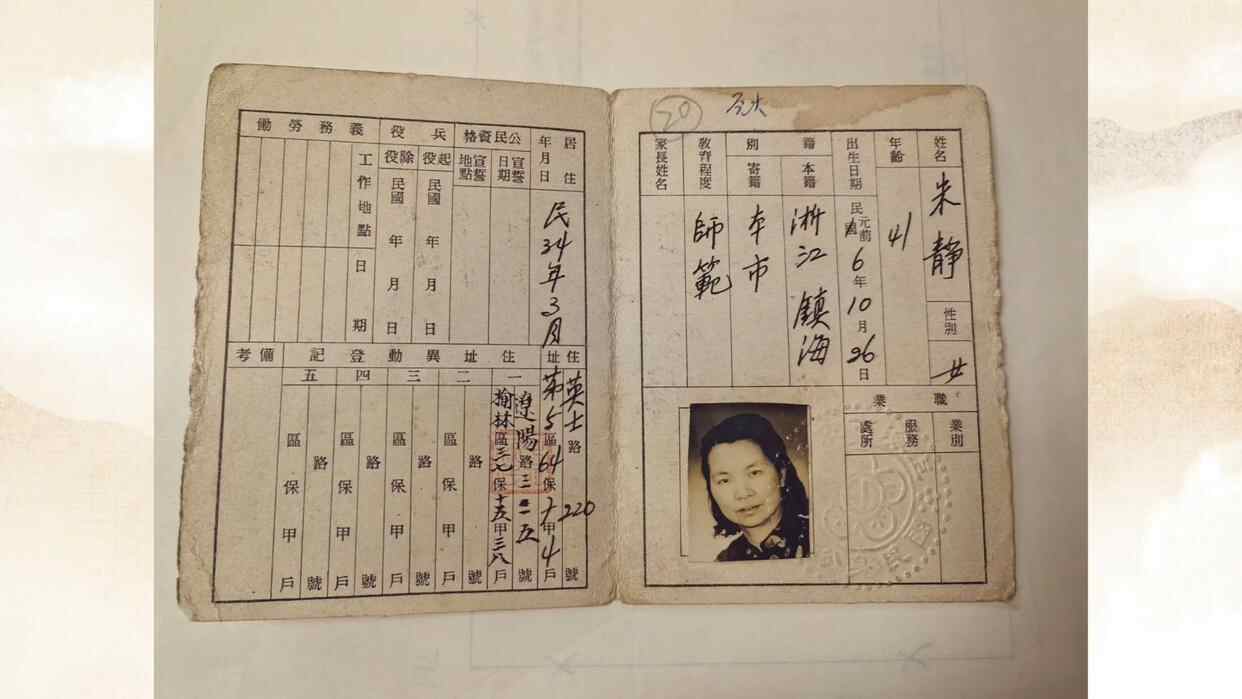 20
姓名 朱静
性別 女
年齡 41
出生日期 民國元前6年10月26日
籍別
本籍 浙江鎮海
寄籍 本市
教育程度 師範
家長姓名
職業
業別
服務處所
居住年月日 民34年3月
公民資格
宣誓日期
宣誓地點
兵役
起役 民國 年 月 日
除役 民國 年 月 日
義務勞働
工作地點
日期
住址 英士路220號
第5區64保十甲4戶
住址異動登記
一 遼陽路三二一五號
榆林區三七保十五甲三八戶
二 路 號
區 保 甲 戶
三 路 號
區 保 甲 戶
四 路 號
區 保 甲 戶
五 路 號
區 保 甲 戶
備考